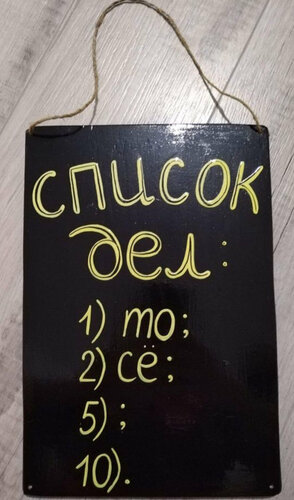 список
дел:
1) то;
2) сё;
5) ;
10).